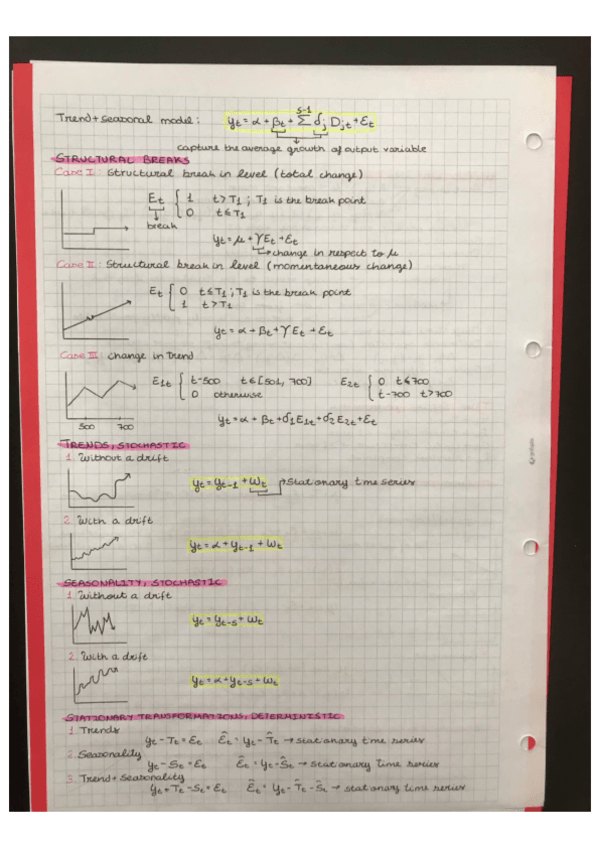 Trend + seasonal model: yt = α + βt + Σ^{s-1} δj Djt + Ɛt
capture the average growth of output variable
STRUCTURAL BREAKS
Case I: Structural break in level (total change)
Et { 1 t>T1 ; T1 is the break point
0 t≤T1
break
yt = μ + γEt + Ɛt
change in respect to μ
Case II: Structural break in level (momentaneous change)
Et { 0 t≤T1 ; T1 is the break point
1 t>T1
yt = α + βt + γEt + Ɛt
Case III: change in trend
E1t { t-500 t∈[501, 700] E2t { 0 t≤700
0 otherwise t-700 t>700
500 700
yt = α + βt + δ1E1t + δ2E2t + Ɛt
TRENDS, STOCHASTIC
1. Without a drift
yt = yt-1 + ωt → stationary time series
2. With a drift
yt = α + yt-1 + ωt
SEASONALITY, STOCHASTIC
1. Without a drift
yt = yt-s + ωt
2. With a drift
yt = α + yt-s + ωt
STATIONARY TRANSFORMATIONS, DETERMINISTIC
1. Trends
yt - Tt = Ɛt Ɛ̂t = yt - T̂t → stationary time series
2. Seasonality
yt - St = Ɛt Ɛ̂t = yt - Ŝt → stationary time series
3. Trend + Seasonality
yt + Tt - St = Ɛt Ɛ̂t = yt - T̂t - Ŝt → stationary time series